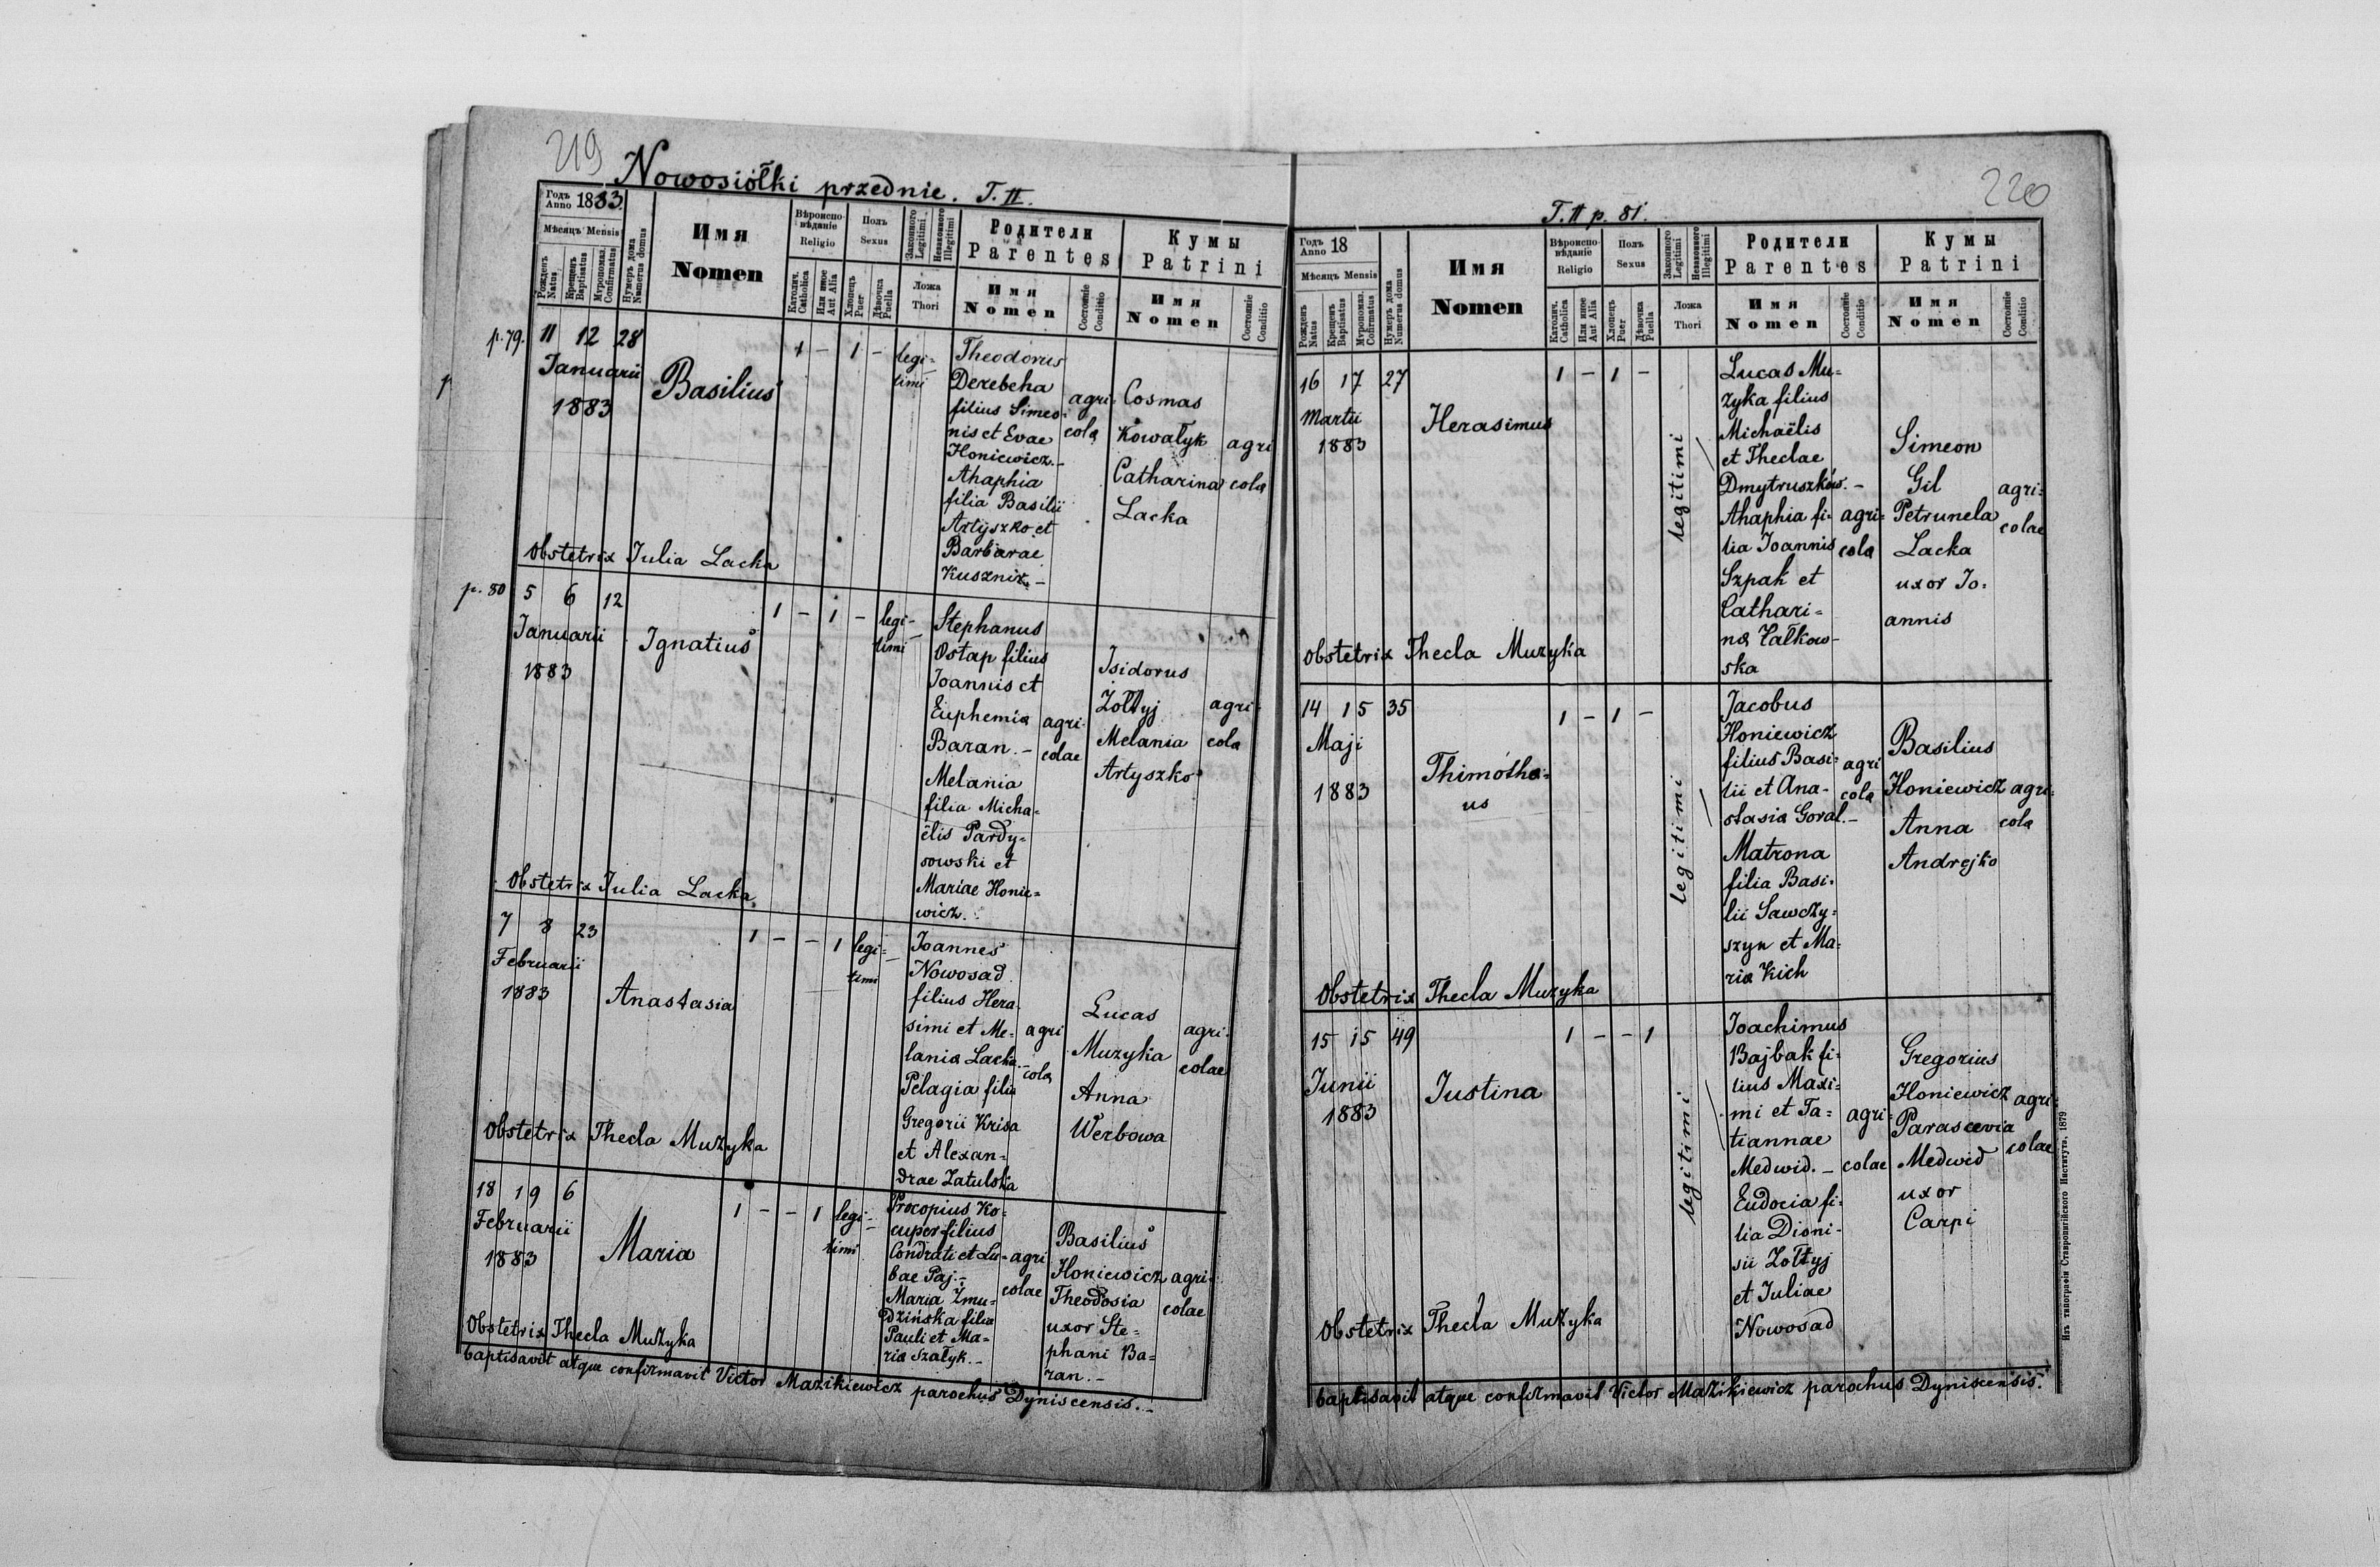 219
Nowosiółki przednie. T. II.
Годъ Anno 1883.
Мѣсяцъ Mensis
Рожденъ Natus
Крещенъ Baptisatus
Мѵропомаз. Confirmatus
Нумеръ дома Numerus domus
Имя
Nomen
Вѣроиспо-
вѣданіе
Religio
Католич. Catholica
Или иное Aut Alia
Полъ
Sexus
Хлопецъ Puer
Дѣвочка Puella
Законного Legitimi
Незаконного Illegitimi
Ложа
Thori
Родители
Parentes
Имя
Nomen
Состояніе Conditio
Кумы
Patrini
Имя
Nomen
Состояніе Conditio
p. 79. 11 12 28
Januarii
1883
Basilius
1 - 1 - legi-
timi
Theodorus
Derebeha
filius Simeo-
nis et Evae
Honiewicz.-
Ahaphia
filia Basilii
Artyszko et
Barbarae
Kusznir.-
agri-
cola
Cosmas
Kowałyk
Catharina
Lacka
agri
cola
Obstetrix Julia Lacka
p. 80 5 6 12
Januarii
1883
Ignatius
1 - 1 - legi-
timi
Stephanus
Ostap filius
Joannis et
Euphemia
Baran.-
Melania
filia Micha=
ëlis Pardy=
sowski et
Mariae Honie=
wicz.
agri-
colae
Isidorus
Żołtyj
Melania
Artyszko
agri-
cola
Obstetrix Julia Lacka
7 8 23
Februarii
1883
Anastasia
1 - - 1 legi=
timi
Joannes
Nowosad
filius Hera-
simi et Me-
lania Lacka.-
Pelagia filia
Gregorii Krisa
et Alexan=
drae Zatulska
agri
cola
Lucas
Muzyka
Anna
Werbowa
agri-
colae
Obstetrix Thecla Muzyka
18 19 6
Februarii
1883
Maria
1 - - 1 legi-
timi
Procopius Ko=
cuper filius
Condrati et Lu=
bae Paj.-
Maria Żmu=
dzińska filia
Pauli et Ma=
ria Szałyk.-
agri
colae
Basilius
Honiewicz
Theodosia
uxor Ste=
phani Ba=
ran.-
agri-
colae
Obstetrix Thecla Muzyka
baptisavit atque confirmavit Victor Mazikiewicz parochus Dyniscensis.-
220
T. II p. 81.
Годъ Anno 18
Мѣсяцъ Mensis
Рожденъ Natus
Крещенъ Baptisatus
Мѵропомаз. Confirmatus
Нумеръ дома Numerus domus
Имя
Nomen
Вѣроиспо-
вѣданіе
Religio
Католич. Catholica
Или иное Aut Alia
Полъ
Sexus
Хлопецъ Puer
Дѣвочка Puella
Законного Legitimi
Незаконного Illegitimi
Ложа
Thori
Родители
Parentes
Имя
Nomen
Состояніе Conditio
Кумы
Patrini
Имя
Nomen
Состояніе Conditio
16 17 27
Martii
1883
Herasimus
1 - 1 -
legitimi
Lucas Mu=
zyka filius
Michaëlis
et Theclae
Dmytruszków.-
Ahaphia fi-
lia Joannis
Szpak et
Cathari=
na Załkow-
ska
agri=
cola
Simeon
Gil
Petrunela
Lacka
uxor Jo=
annis
agri=
colae
Obstetrix Thecla Muzyka
14 15 35
Maji
1883
Thimothe=
us
1 - 1 -
legitimi
Jacobus
Honiewicz
filius Basi=
lii et Ana-
stasia Goral.-
Matrona
filia Basi-
lii Sawczy=
szyn et Ma=
ria Kich
agri
cola
Basilius
Honiewicz
Anna
Andrejko
agri=
cola
Obstetrix Thecla Muzyka
15 15 49
Junii
1883
Justina
1 - - 1
legitimi
Joachimus
Bajbak fi=
lius Maxi=
mi et Ta=
tiannae
Medwid.-
Eudocia fi-
lia Dioni-
sii Żołtyj
et Juliae
Nowosad
agri=
colae
Gregorius
Honiewicz
Parascevia
Medwed
uxor
Carpi
agri-
colae
Obstetrix Thecla Muzyka
baptisavit atque confirmavit Victor Mazikiewicz parochus Dyniscensis.
Изъ типографіи Ставропигійского Института, 1879